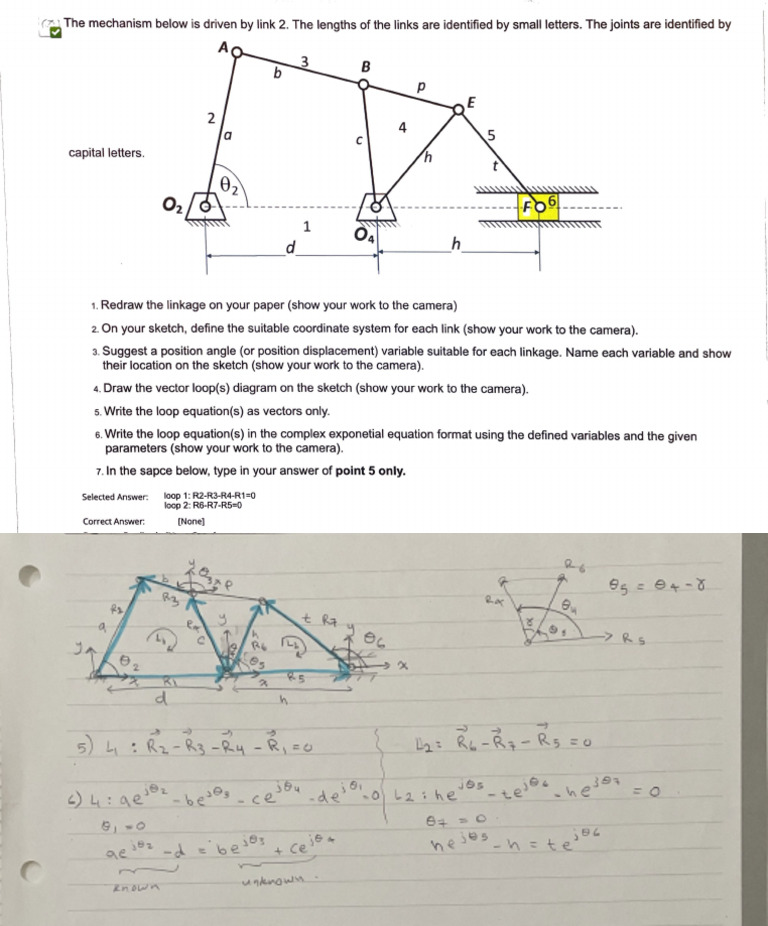 The mechanism below is driven by link 2. The lengths of the links are identified by small letters. The joints are identified by
A
3
B
b
p
E
2
a
c
4
h
5
t
capital letters.
θ2
O2
F
6
1
O4
d
h
1. Redraw the linkage on your paper (show your work to the camera)
2. On your sketch, define the suitable coordinate system for each link (show your work to the camera).
3. Suggest a position angle (or position displacement) variable suitable for each linkage. Name each variable and show
their location on the sketch (show your work to the camera).
4. Draw the vector loop(s) diagram on the sketch (show your work to the camera).
5. Write the loop equation(s) as vectors only.
6. Write the loop equation(s) in the complex exponetial equation format using the defined variables and the given
parameters (show your work to the camera).
7. In the sapce below, type in your answer of point 5 only.
Selected Answer: loop 1: R2-R3-R4-R1=0
loop 2: R6-R7-R5=0
Correct Answer: [None]
y
b
θ3
x
p
R3
R2
a
R4
c
y
h
R6
t
R7
y
θ6
L1
L2
y
θ2
x
R1
θ5
x
R5
x
d
h
R6
R4
θ4
γ
θ5
R5
θ5 = θ4 - γ
5) L1 : R⃗2 - R⃗3 - R⃗4 - R⃗1 = 0
L2 : R⃗6 - R⃗7 - R⃗5 = 0
6) L1 : ae^jθ2 - be^jθ3 - ce^jθ4 - de^jθ1 = 0
L2 : he^jθ5 - te^jθ6 - he^jθ7 = 0
θ1 = 0
θ7 = 0
ae^jθ2 - d = be^jθ3 + ce^jθ4
he^jθ5 - h = te^jθ6
known
unknown.